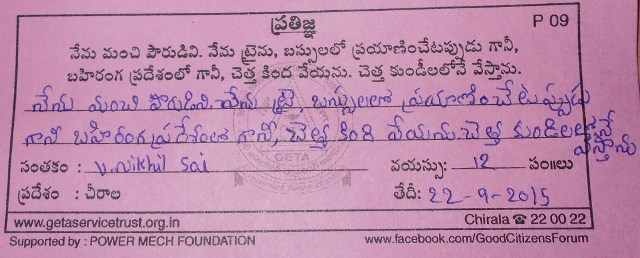 ప్రతిజ్ఞ P 09
నేను మంచి పౌరుడిని. నేను ట్రైను, బస్సులలో ప్రయాణించేటప్పుడు గానీ,
బహిరంగ ప్రదేశంలో గానీ, చెత్త కింద వేయను. చెత్త కుండీలలోనే వేస్తాను.
నేను మంచి పౌరుడిని. నేను ట్రై, బస్సులలో ప్రయాణించేటప్పుడు
గానీ బహిరంగ ప్రదేశంలో గానీ, చెత్త కింద వేయను. చెత్త కుండిలలోనే
వేస్తాను
GETA
సంతకం : V. Nikhil Sai వయస్సు: 12 సం॥లు
ప్రదేశం : చీరాల తేదీ: 22-9-2015
www.getaservicetrust.org.in Chirala ☎ 22 00 22
Supported by : POWER MECH FOUNDATION www.facebook.com/GoodCitizensForum